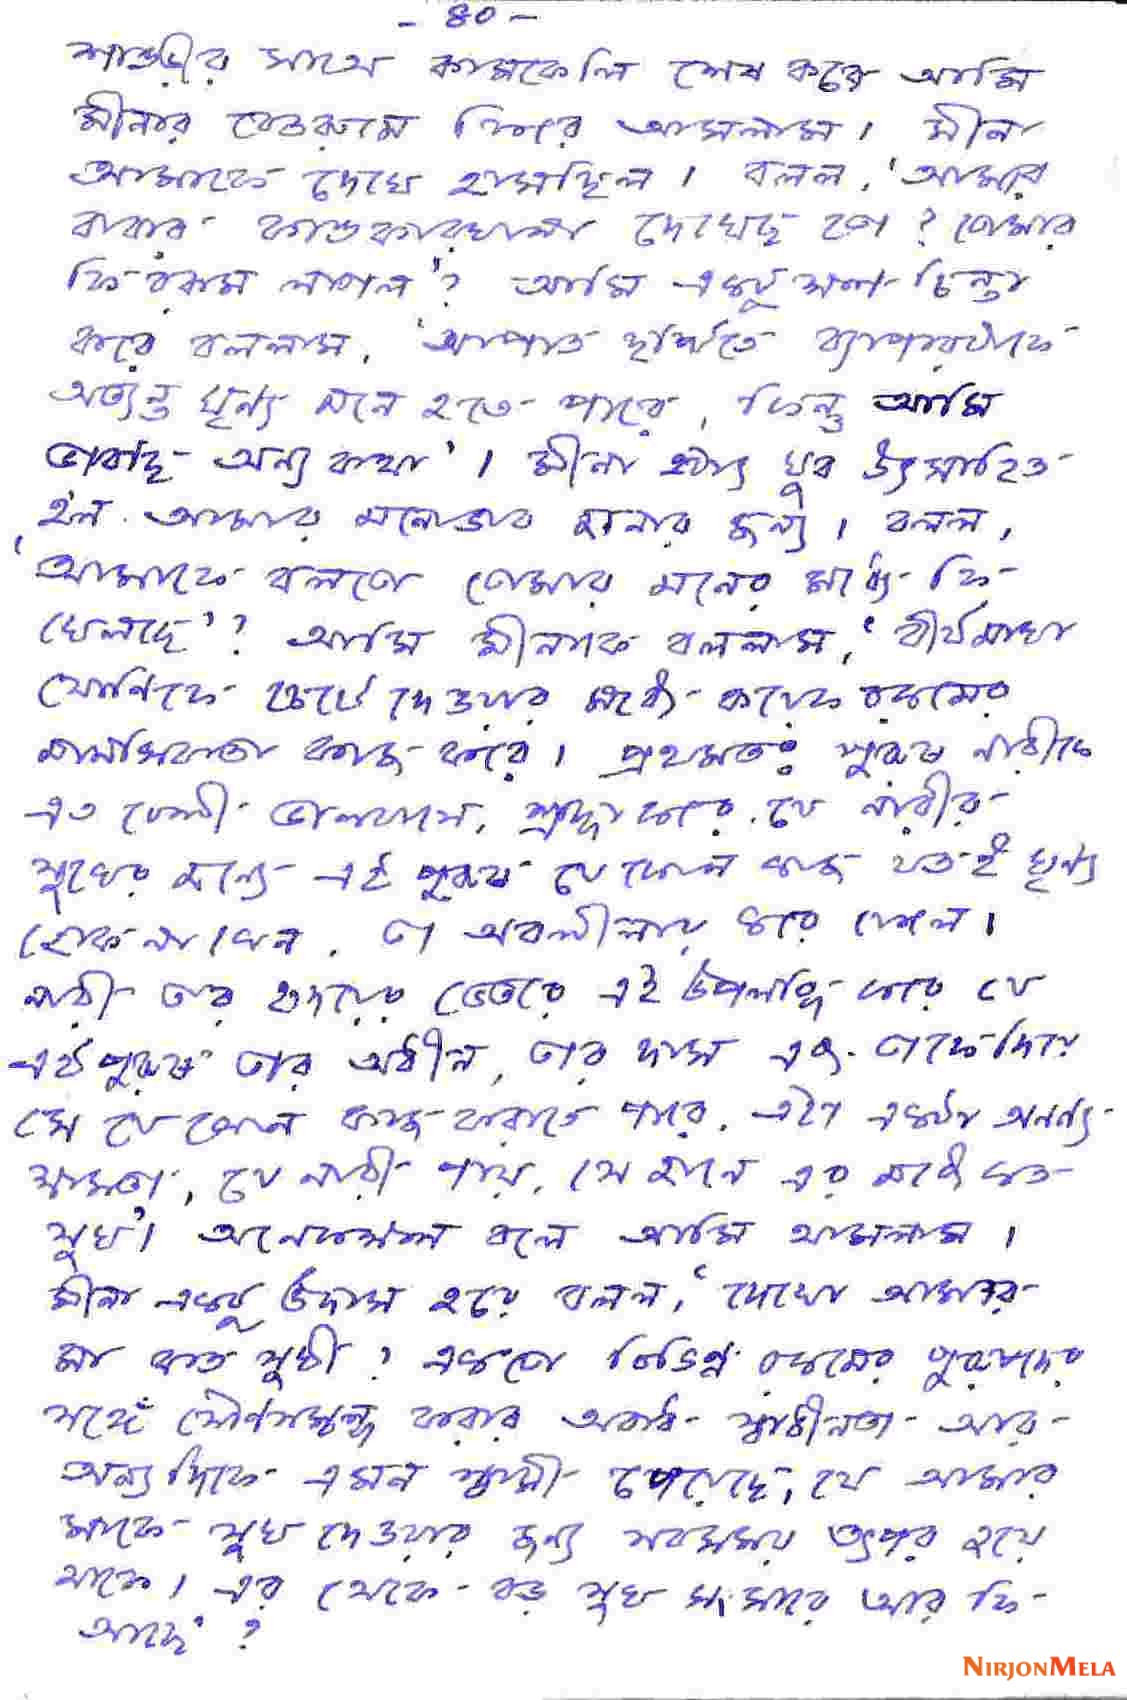 - ৪০ -
শাশুড়ীর সাথে কামকেলি শেষ করে আমি
মীনার বেডরুমে ফিরে আসলাম। মীনা
আমাকে দেখে হাসছিল। বলল, 'আমার
বাবার কান্ডকারখানা দেখেছ তো? তোমার
কি রকম লাগল'? আমি একটু ক্ষণ চিন্তা
করে বললাম, 'আপাত দৃষ্টিতে ব্যাপারটাকে
অত্যন্ত ঘৃন্য মনে হতে পারে, কিন্তু আমি
ভাবছি অন্য কথা'। মীনা হঠাৎ খুব উৎসাহিত
হল আমার মনোভাব জানার জন্য। বলল,
'আমাকে বলতো তোমার মনের মধ্যে কি
খেলছে'? আমি মীনাকে বললাম, 'বীর্যমাখা
যোনিকে চেটে দেওয়ার মধ্যে কয়েক রকমের
মানসিকতা কাজ করে। প্রথমতঃ পুরুষ নারীকে
এত বেশী ভালবাসে, শ্রদ্ধা করে যে নারীর
সুখের জন্যে এই পুরুষ যে কোন কাজ যতই ঘৃন্য
হোক না কেন, তা অবলীলায় করে ফেলে।
নারী তার হৃদয়ের ভেতরে এই উপলব্ধি করে যে
এই পুরুষ তার অধীন, তার দাস এবং তাকে দিয়ে
সে যে কোন কাজ করাতে পারে। এটা একটা অনন্য
ক্ষমতা, যে নারী পায়, সে জানে এর মধ্যে কত
সুখ'। অনেকক্ষণ বলে আমি থামলাম।
মীনা একটু উদাস হয়ে বলল, 'দেখো আমার
মা কত সুখী? একতো বিভিন্ন রকমের পুরুষদের
সঙ্গে যৌণসম্বন্ধ করার অবাধ স্বাধীনতা আর
অন্যদিকে এমন স্বামী পেয়েছে, যে আমার
মাকে সুখ দেওয়ার জন্য সবসময় তৎপর হয়ে
থাকে। এর থেকে বড় সুখ সংসারে আর কি
আছে'?
NIRJONMELA